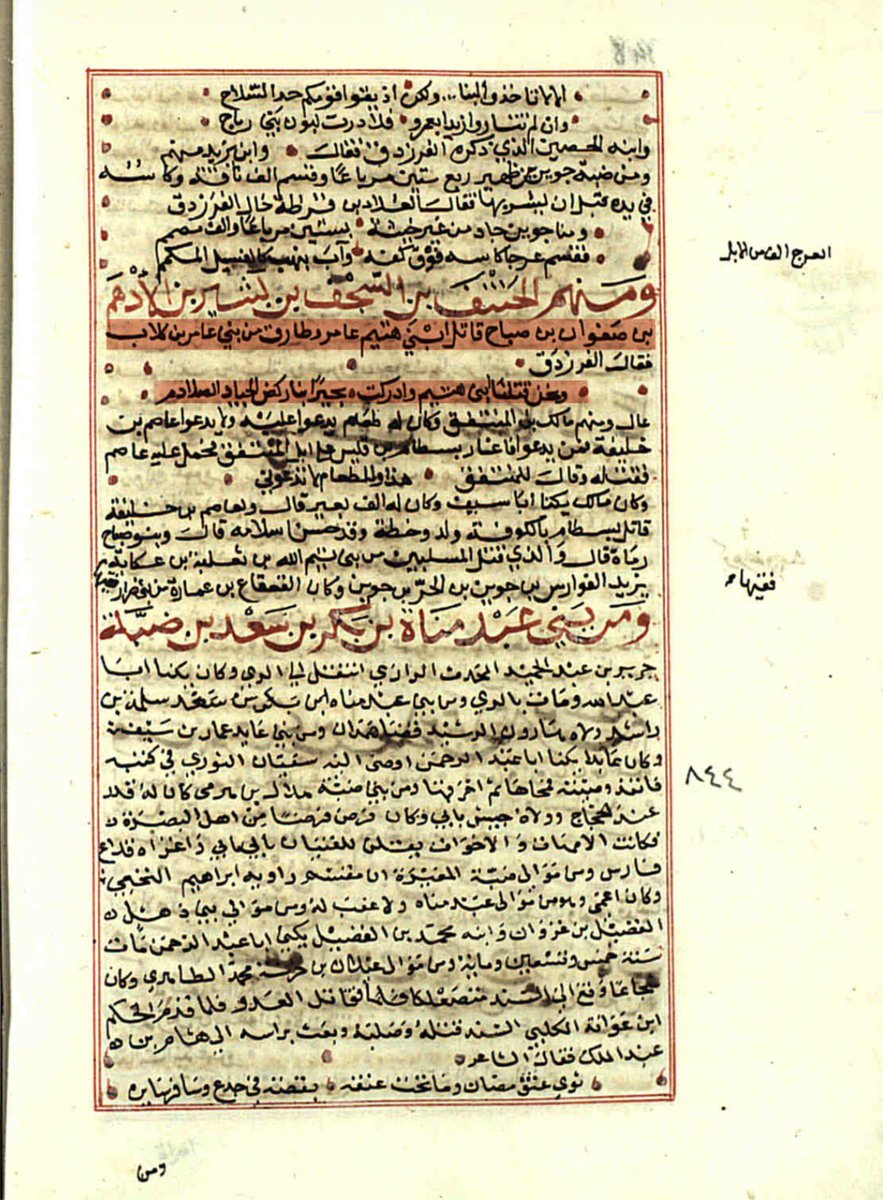 الا لا تاخذوا لبنا .. ولكن اذيقوا قومكم حد السلاح
وان لم تثاروا زيدا بعمرو فلا درت لبون بني رياح
وابنه الحصين الذي ذكره الفرزدق فقال وابن يزيد منهم
ومن ضبة جوين بن ظهير ربع ستين مرباعا وقسم الف ناقة وكاسه
في يده قبل ان يشربها فقال العلاء بن قرظة خال الفرزدق
ومنا جوين جاد من غير خشية بستين مرباعا والف مصمم
فقسم عرجا كاسه فوق كفه وآب بنهب كالفسيل المكمم
العرج الف من الابل
ومنهم الحنتف بن السجف بن بشير بن الادهم
بن صفوان بن صباح قاتل ابني هتيم عامر وطارق من بني عامر بن كلاب
فقال الفرزدق
ونحن قتلنا ابني هتيم وادركت بجيرا بنا ركض الجياد الصلادم
قال ومنهم مالك بن المنتفق وكان له طعام يدعوا عليه ولا يدعوا عاصم بن
خليفة فمن يدعوا فاغار بسطام بن قيس على ابل المنتفق فحمل عليه عاصم
فقتله وقال للمنتفق هذا وللطعام لا تدعوني
وكان مالك يكنا ابا سيف وكان له الف بعير قال ولعاصم بن خليفة
قاتل بسطام بالكوفة ولد وخطة وقد حسن اسلامه قال وبنو صباح
رماة قال والذي قتل المسلبين من بني تيم الله بن ثعلبة بن عكابة
يزيد الفوارس بن جوين بن الحر بن جوين وكان القعقاع بن عمارة من
فقيهام
ومن بني عبد مناة بن بكر بن سعد بن ضبة
جرير بن عبد الحميد المحدث الرازي انتقل الى الري وكان يكنا ابا
عبد الله ومات بالري ومن بني عبد مناه ابن بكر بن سعد سلمة بن
راشد ولاه هارون الرشيد قضا همدان ومن بني عايد عمار بن سيف
وكان عابدا يكنا ابا عبد الرحمن اوصى اليه سفيان الثوري في كتبه
٨٤٤
فمحاها ثم احرقها ومن بني ضبة هلال بن هرمى كان له قدر
عند الحجاج وولاه جيش بابي وكان فرض فرضا من اهل البصرة
فكانت الامهات والاخوات
فارس ومن موالي ضبة المغيرة بن مقسم راويه ابراهيم النخعي
وكان اعمى وهو من موالي عبد مناه ولا عقب له ومن موالي بني ذهل
الفضيل بن غزوان وابنه محمد بن الفضيل يكنى ابا عبد الرحمن مات
سنة خمس وتسعين وماية ومن موالي محمد الطاهري وكان
شجاعا وفتح السند العدو فلما قدم الحكم
ابن عوانة الكلبي السند قتله وصلبه وبعث براسه الى هشام بن
عبد الملك فقال الشاعر
ومن